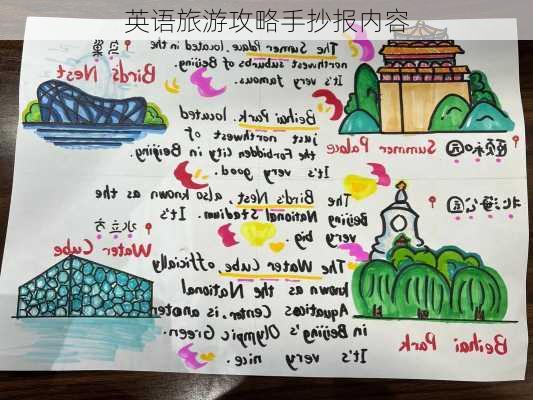 英语旅游攻略手抄报内容
鸟巢
Bird's Nest
The Summer Palace, located in the
northwest suburbs of Beijing.
It's very famous.
颐和园
Summer Palace
Beihai Park, located
just northwest of
the Forbidden City in Beijing.
It's very good.
The Bird's Nest, also known as the
Beijing National Stadium. It's
very big.
北海公园
Beihai Park
水立方
Water Cube
The Water Cube, officially
known as the National
Aquatics Center, is
in Beijing's Olympic Green.
It's very nice.